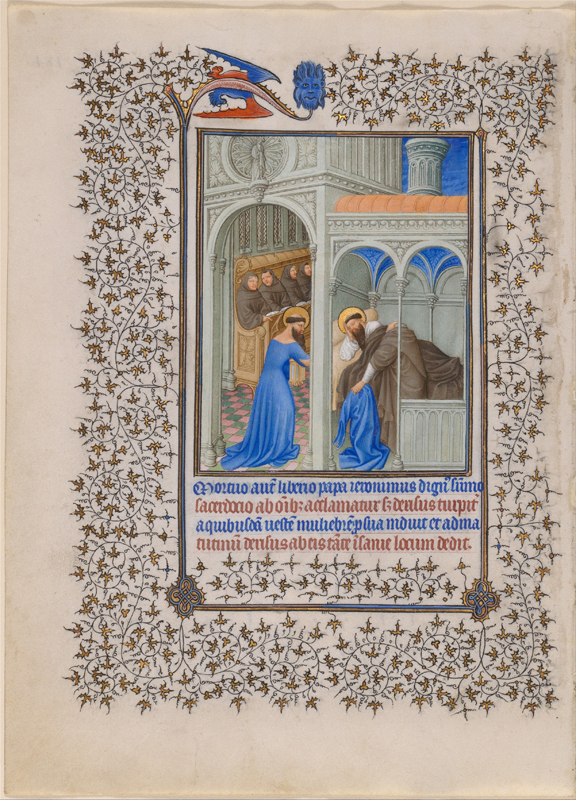 Mortuo aut̄ liberio papa ieronimus dignꝰ sūmo
sacerdocio ab oīb; acclamatur s; derisus turpit̄
a quibusdā vestē muliebrē p sua induit et ad ma
tutinū derisus ab eis tāte īsanie locum dedit.